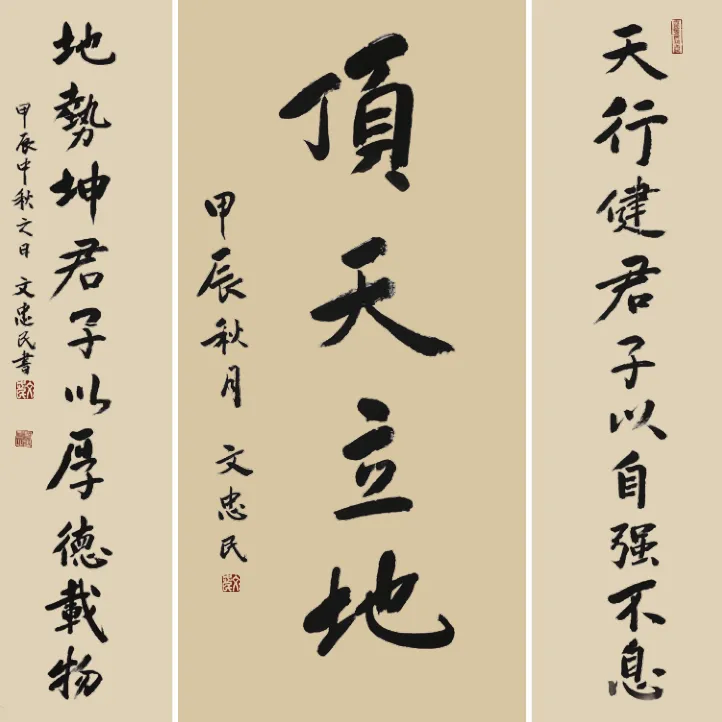 天行健君子以自强不息
頂天立地
甲辰秋月 文忠民
地勢坤君子以厚德載物
甲辰中秋之日 文忠民書